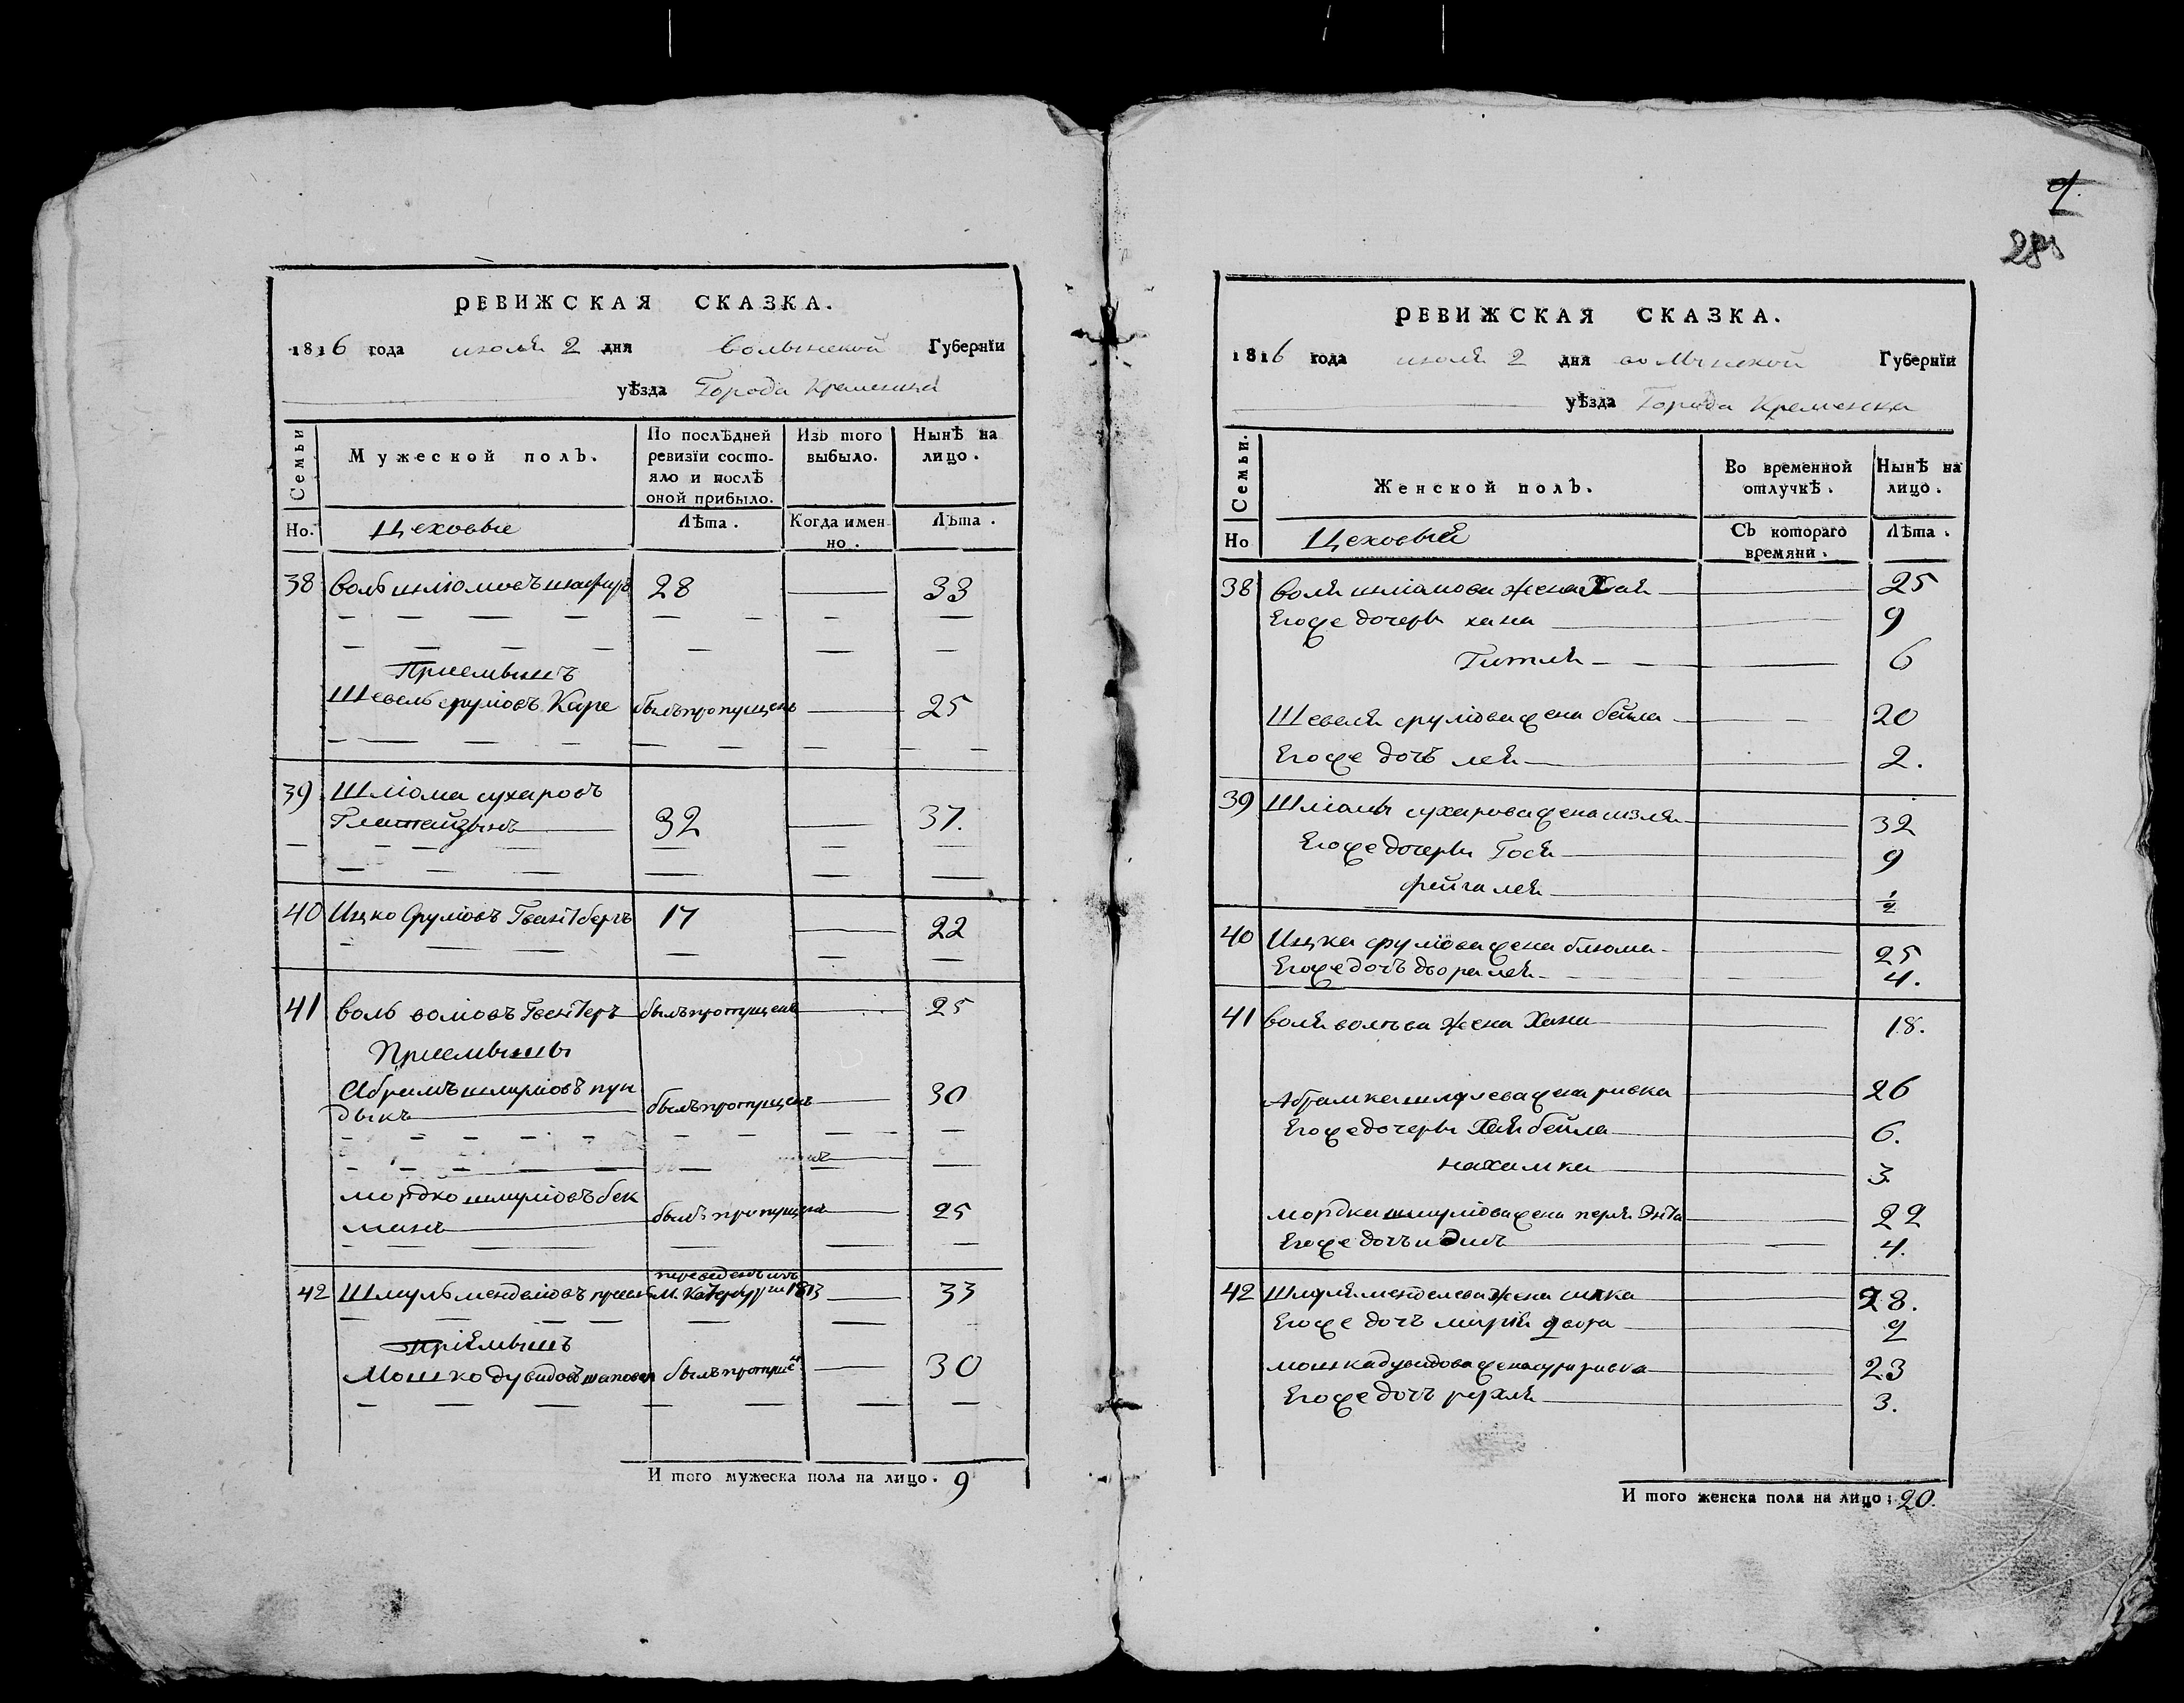 РЕВИЖСКАЯ СКАЗКА.
1816 года июля 2 дня Волынской Губернїи
уѣзда Города Кременца
Семьи
Мужеской полъ.
По послѣдней ревизїи состо-
яло и послѣ
оной прибыло.
Изъ того
выбыло.
Нынѣ на
лицо.
Но.
Цеховые
Лѣта.
Когда имен-
но.
Лѣта.
38 Воль шлiомовъ 28 33
Приемышъ
Шевель сруліовъ Каре былъ пропущенъ 25
39 Шліома сухаровъ
32 37.
40 Ицко Сруліовъ 17 22
41 Воль воліовъ былъ пропущенъ 25
Приемыши
Абрамъ шмуліовъ пун
дыкъ былъ пропущенъ 30
мордко шмуліовъ бек
манъ былъ пропущенъ 25
переведенъ изъ
42 Шмуль менделіовъ м. 1813 33
Пріемышъ
Мошко дувидовъ былъ пропущенъ 30
И того мужеска пола на лицо. 9
9
РЕВИЖСКАЯ СКАЗКА.
1816 года июля 2 дня Волынской Губернїи
уѣзда Города Кременца
Семьи.
Женской полъ.
Во временной
отлучкѣ.
Нынѣ на
лицо.
Но
Цеховый
Съ котораго
времяни.
Лѣта.
38 Воля шліомова жена Хая 25
Его же дочери хана 9
Гитля 6
Шевеля сруліова жена бейла 20
Его же дочь лея 2.
39 Шліомы сухарова жена 32
Его же дочери Гося 9
фейга лея 1/2
40 Ицка сруліова жена блюма 25
Его же дочь двора лея 4.
41 Воля вольва жена Хана 18.
Абрамка шмулева жена ривка 26
Его же дочери Хая бейла 6.
нахамка 3
мордка шмуліова жена перля Энта 22
Его же дочь 4.
42 Шмуля менделева жена 28.
Его же дочь двора 9
мошка дувидова жена сура ривка 23
Его же дочь рухля 3.
И того женска пола на лицо: 20.